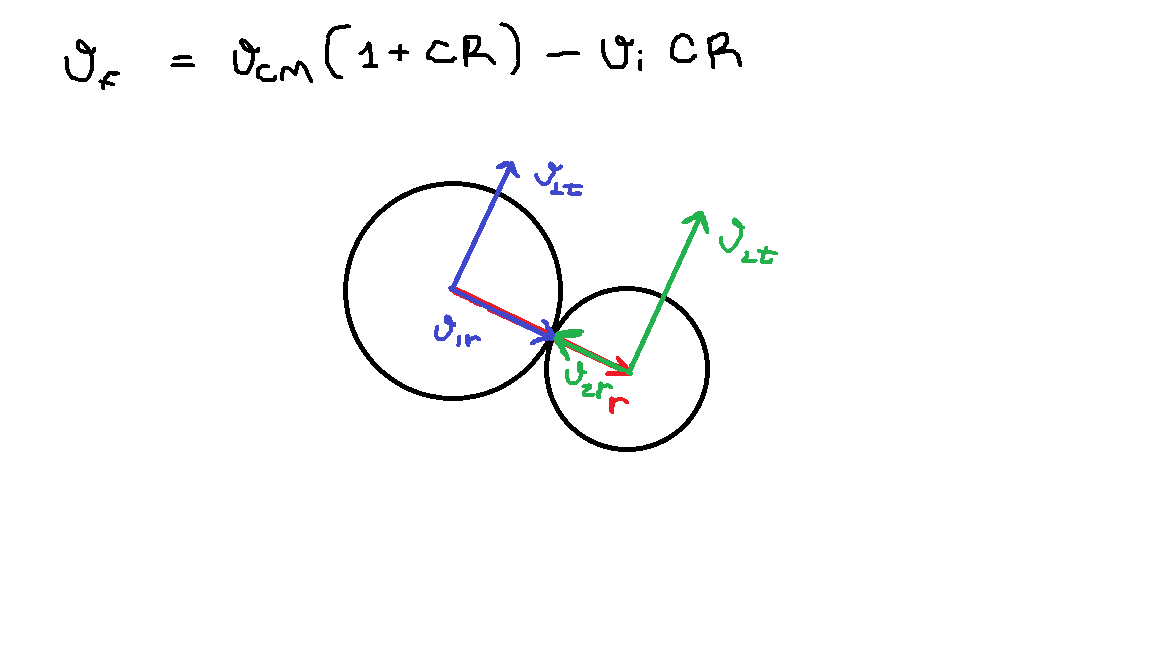 v_F = v_CM (1 + CR) - v_i CR
v_1t
v_2t
v_1r
v_2r
r